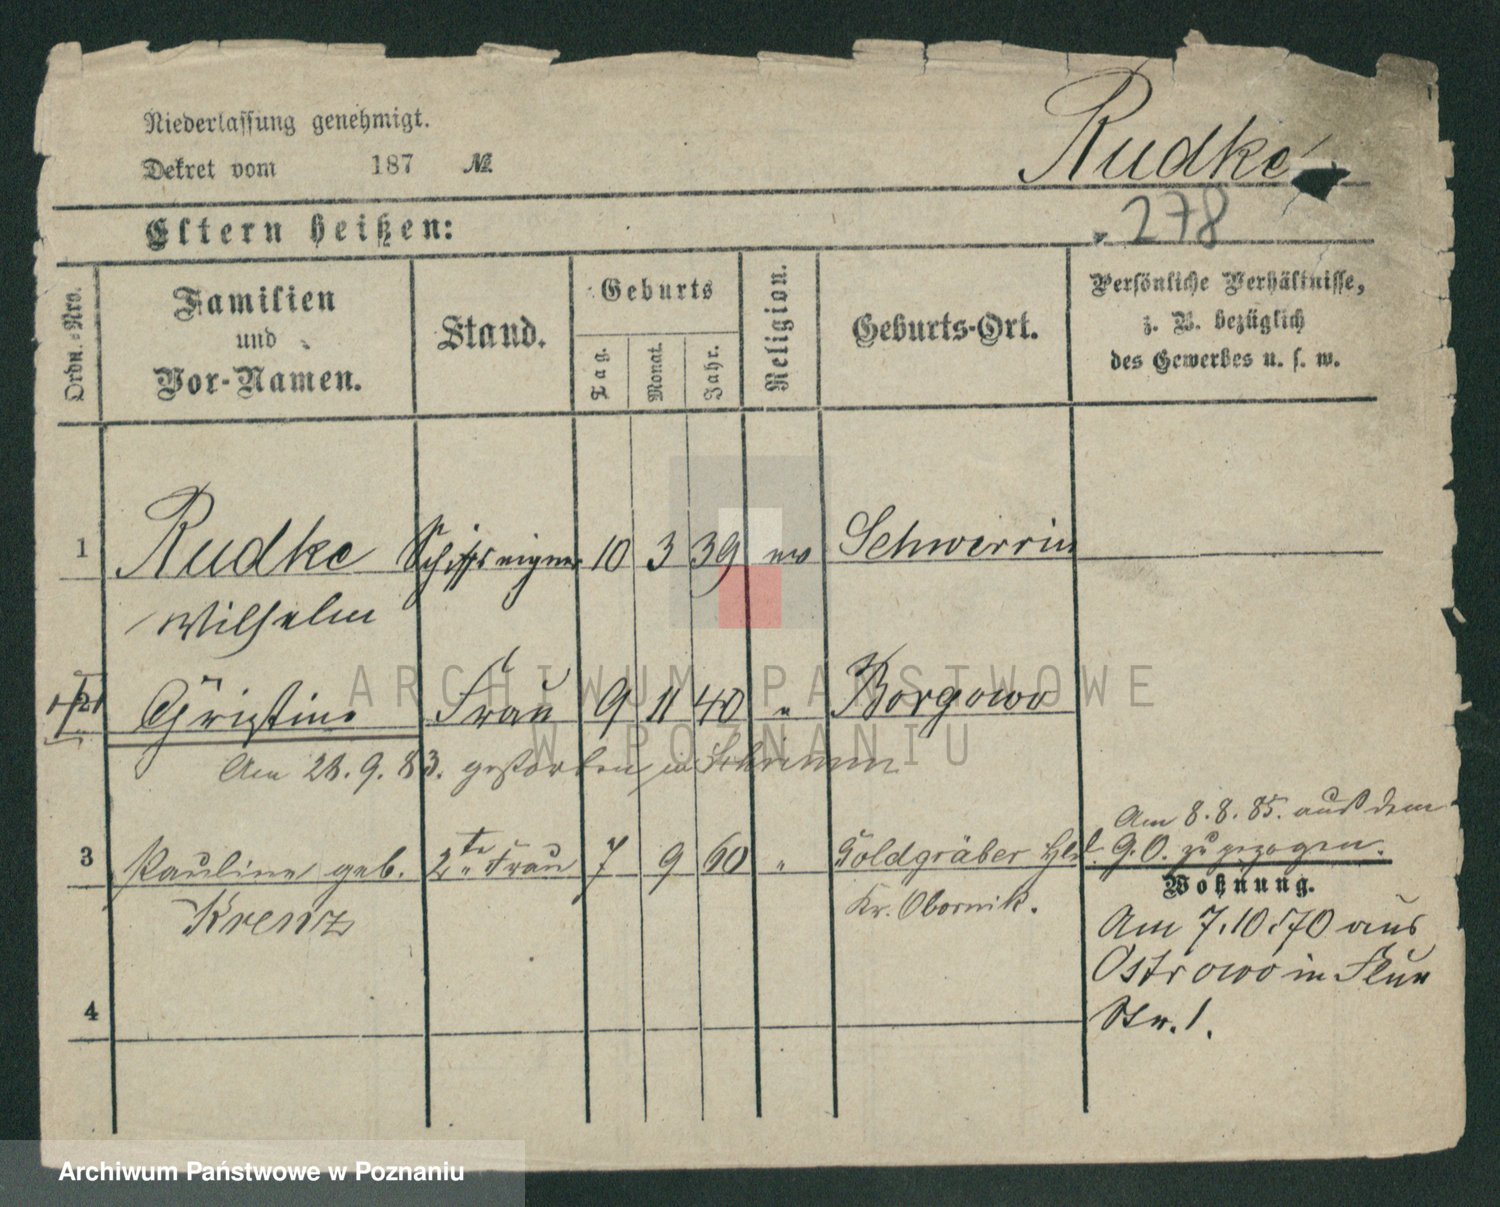 Niederlassung genehmigt.
Dekret vom 187 №
Rudke
278
Eltern heißen:
Ordn.-Nro.
Familien
und
Vor-Namen.
Stand.
Geburts
Tag.
Monat.
Jahr.
Religion.
Geburts-Ort.
Persönliche Verhältnisse,
z. B. bezüglich
des Gewerbes u. s. w.
1 Rudke Schiffseigner 10 3 39 ev Schwerrin
Wilhelm
2 Christine Frau 9 11 40 " Borgowo
Am 23. 9. 83. gestorben in Schrimm
Am 8. 8. 85. aus dem
3 Pauline geb. 2te Frau 7 9 60 " Goldgräber Hld. G. O. zugezogen.
Krenz
Kr. Obornik.
Wohnung.
Am 7. 10. 70 aus
Ostrowo in
Str. 1.
4
ARCHIWUM PAŃSTWOWE
W POZNANIU
Archiwum Państwowe w Poznaniu